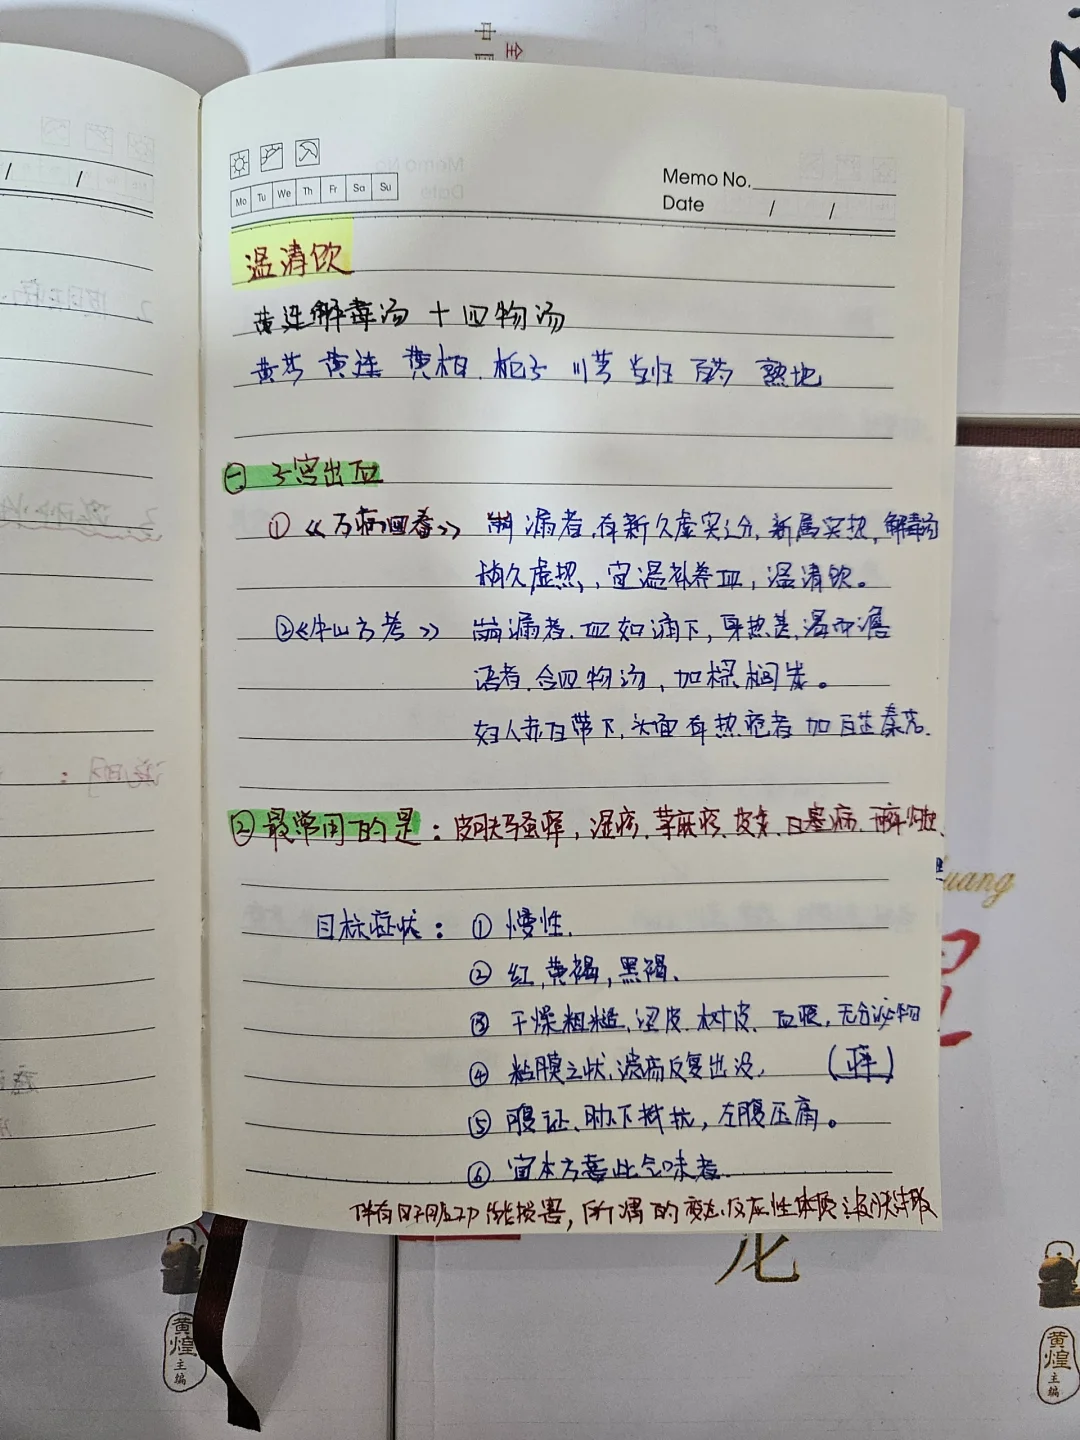 Memo No.
Date / /
Mo Tu We Th Fr Sa Su
温清饮
黄连解毒汤 + 四物汤
黄芩 黄连 黄柏 栀子 川芎 当归 白芍 熟地
㊀ 子宫出血
① 《万病回春》 崩漏者,有新久虚实之分,新属实热,解毒汤
稍久虚热,宜温补养血,温清饮。
② 《牛山方考》 崩漏者.血如滴下,身热甚,
语者,合四物汤,加棕榈炭。
妇人赤白带下,头面有热疮者 加
㊁ 最常用的是:皮肤骚痒,湿疹,荨麻疹,皮炎,白塞病,
目标症状: ① 慢性.
② 红,黄褐,黑褐、
③ 干燥粗糙,涩皮、树皮、血痕,无分泌物
④ 粘膜之状,溃疡反复出没, (痒)
⑤ 腹证、肋下抵抗,左腹压痛。
⑥ 宜本方苦此气味者.
伴有肝脏功能损害,所谓的变态反应性体质
uang
黄煌
主编
黄煌
主编